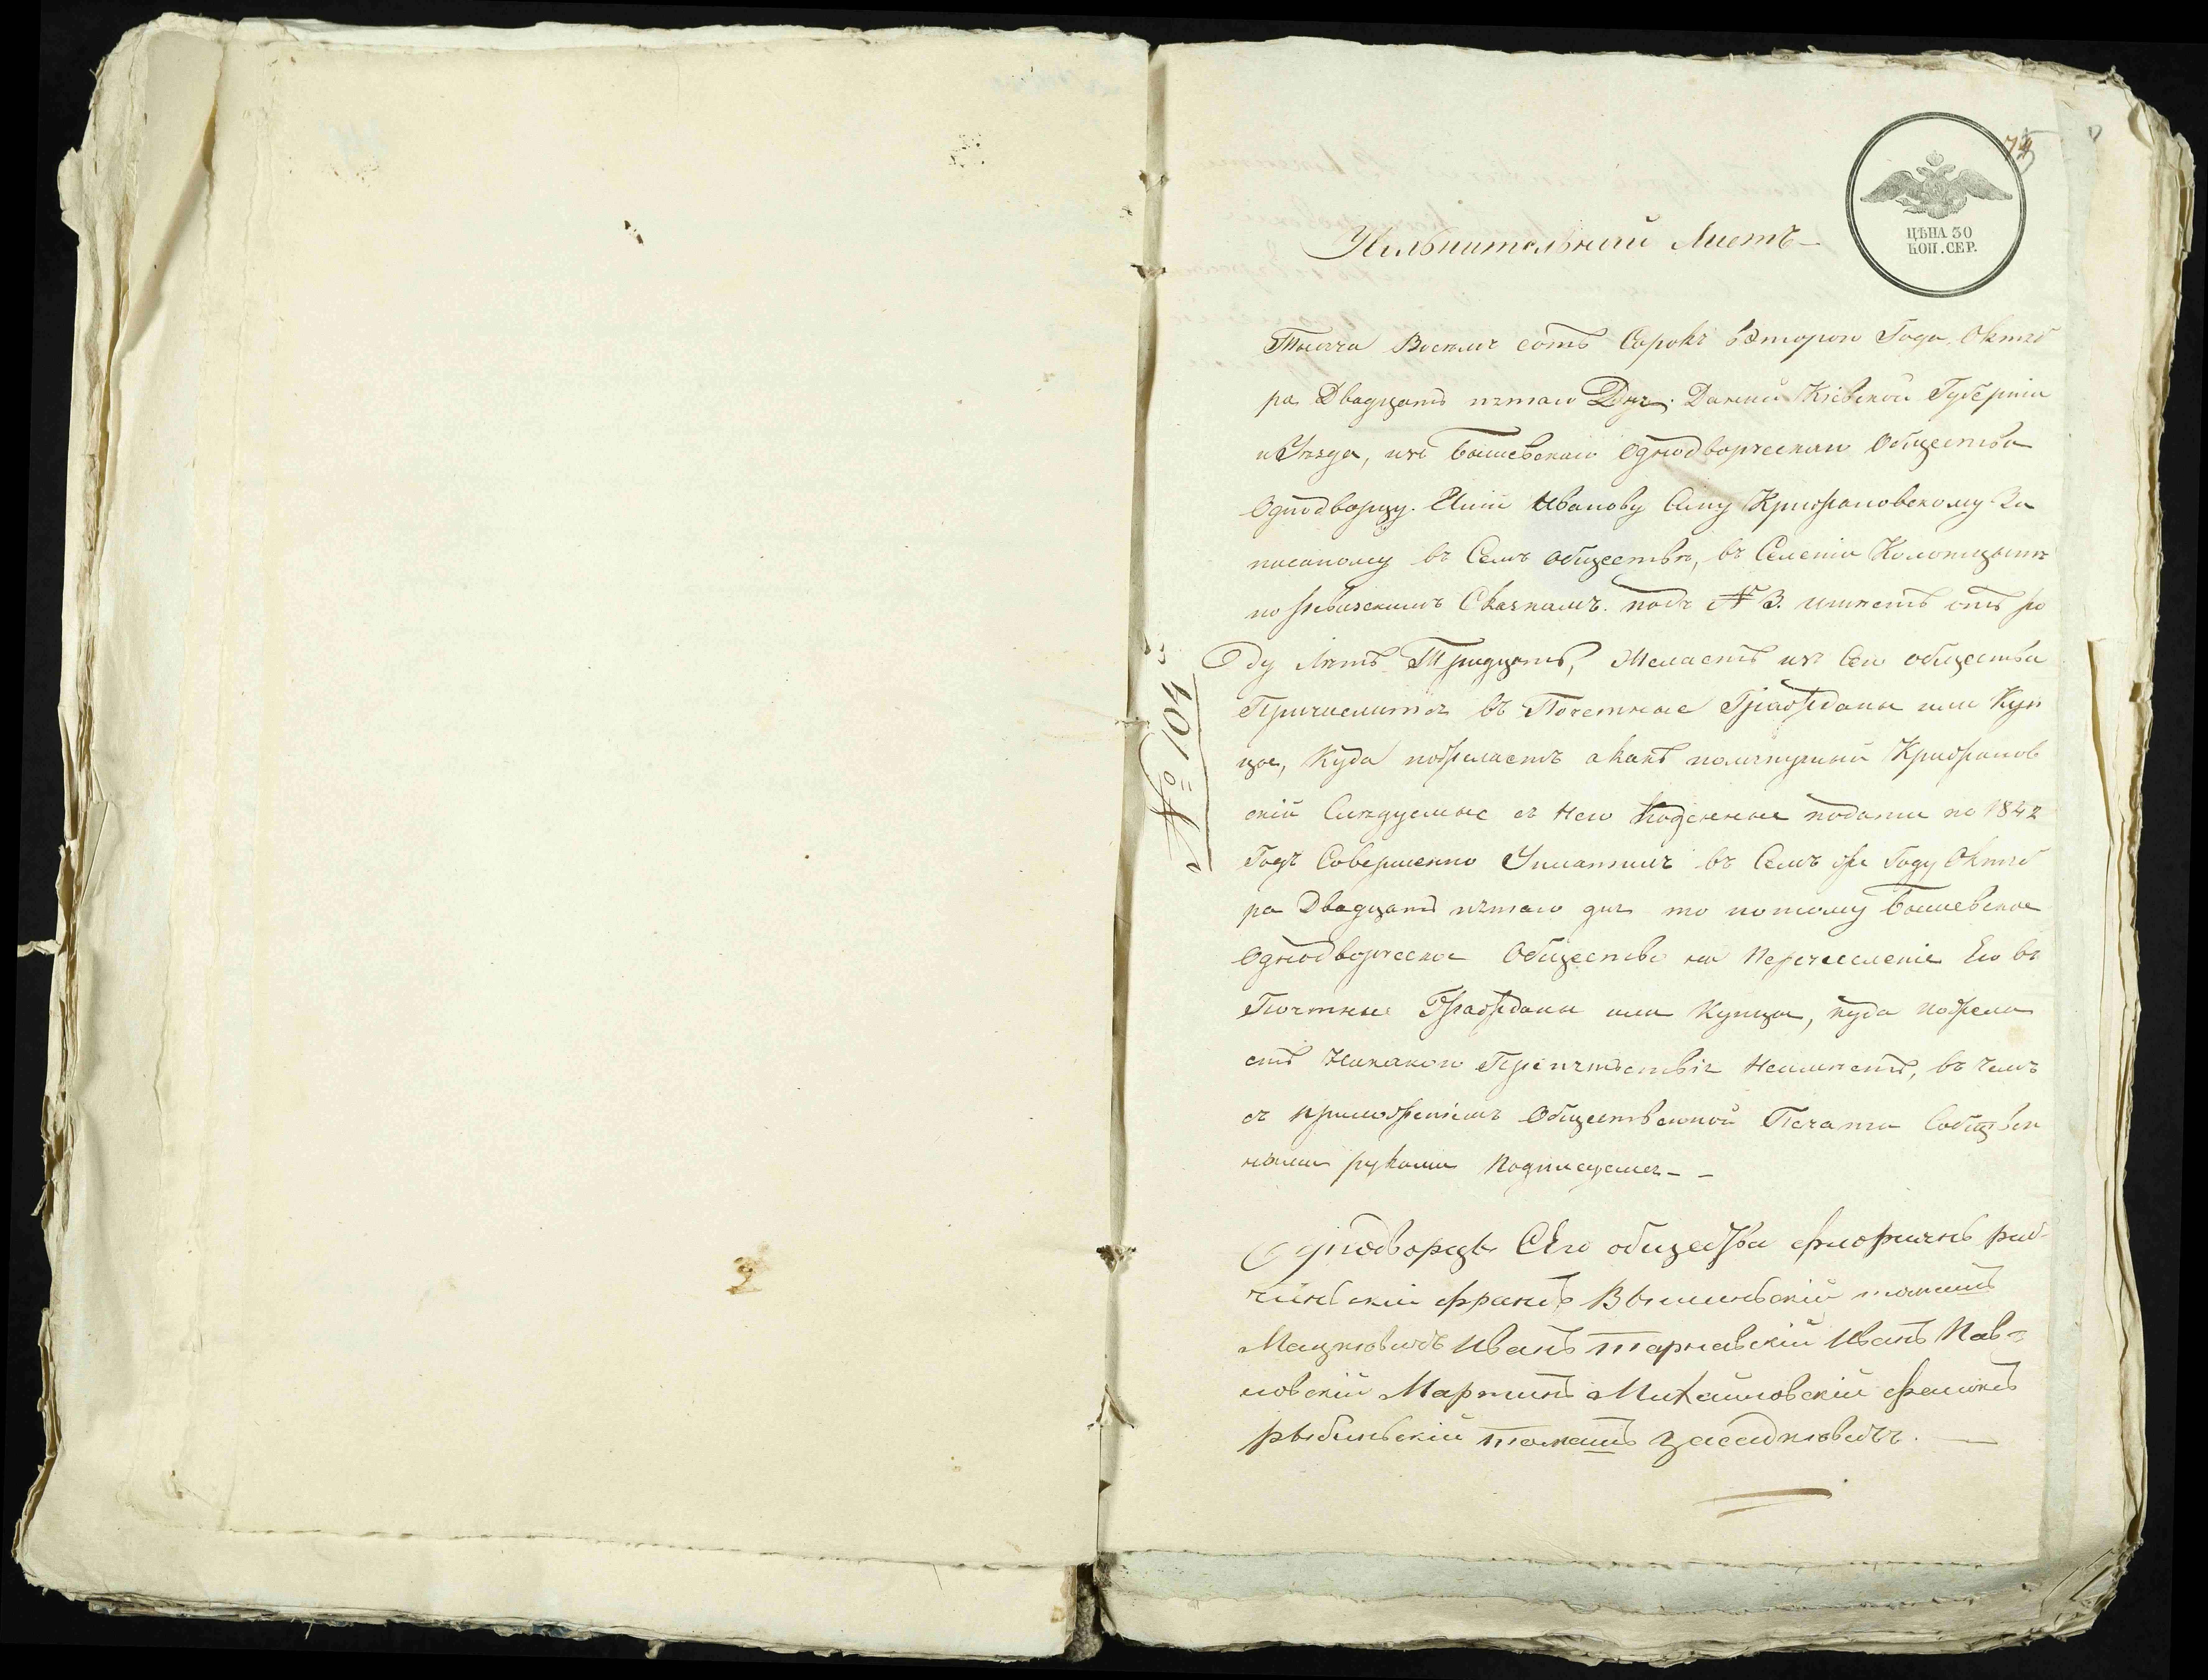 75
ЦѢНА 30
КОП. СЕР.
Увольнительный Листъ
Тысяча Восемъ сотъ Сорокъ второго Года Октяб
ра Двадцать пятаго Дня. Данный Кіевской Губерніи
и Уѣзда, изъ Бышевскаго Однодворческаго Общества
Однодворцу Иванову Сыну Крижановскому За
писаному въ Семъ обществѣ, въ Селеніи
по ревизскимъ Сказкамъ подъ № 3. имѣетъ отъ ро
ду Лѣтъ Тридцать, Желаетъ изъ Сего общества
Причислится въ Почетные Граждани или Куп
цы, Куда пожелаетъ а какъ Крижанов
скій Слѣдуемые съ Него Казенные подати по 1842
Годъ Совершенно Уплатилъ въ Семъ же Году Октяб
ра Двадцать пятаго дня то потому Бышевское
Однодворческое Общество на Перечисленіе Его въ
Почтные Граждани или Купцы, куда пожела
етъ Никакого Препятствія Неимѣетъ, въ чемъ
съ приложеніемъ Общественной Печати Собствен
ными руками Подписуемся - -
№ 104
Однодворцы Сего общества
францъ томашъ
Мацкювичъ Иванъ тарнавскій Иванъ Пав-
ловскій Мартинъ Михайловскій
рыбинскій томашъ